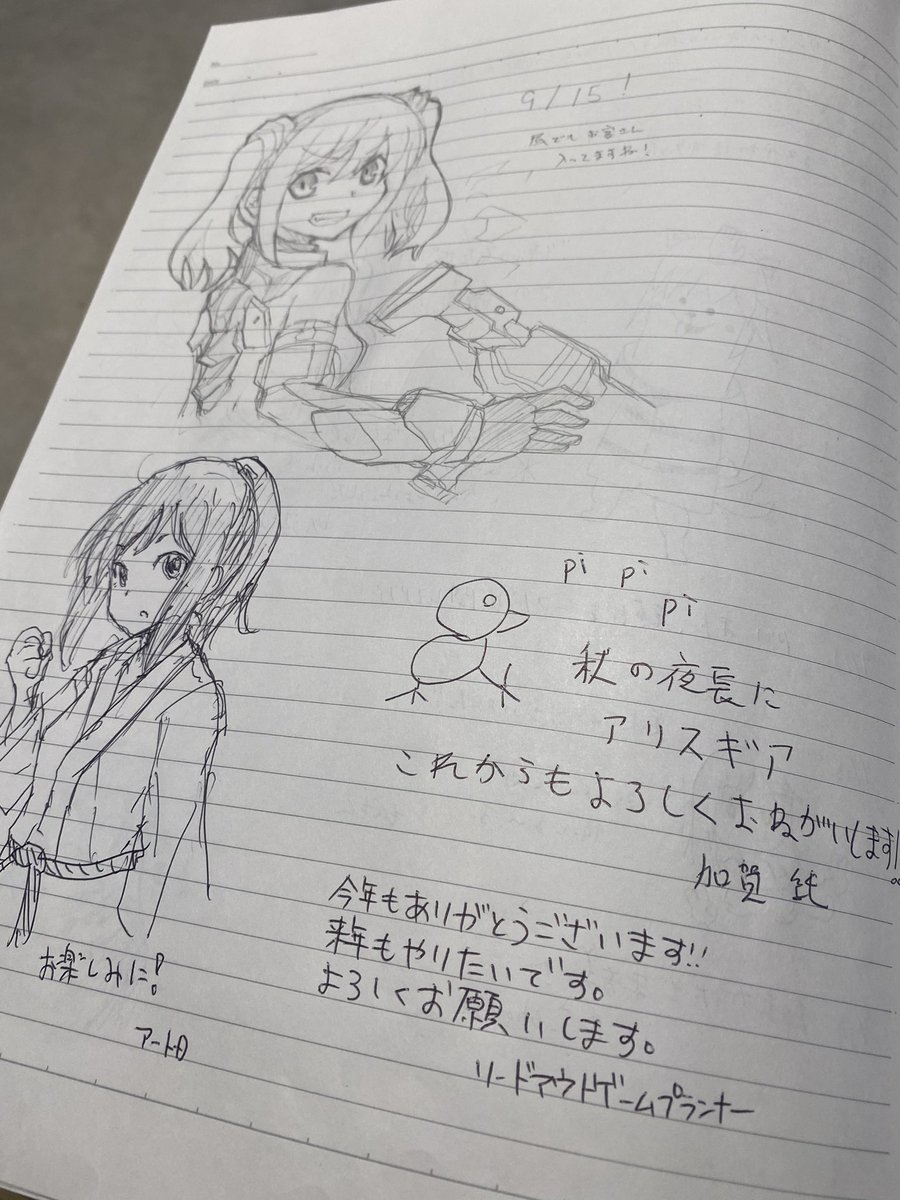 9/15!
お客さん
入ってますね!
pi pi
pi
秋の夜長に
アリスギア
これからもよろしくおねがいします!。
加賀 純
今年もありがとうございます!!
来年もやりたいです。
よろしくお願いします。
リードアウトゲームプランナー
お楽しみに!
アート